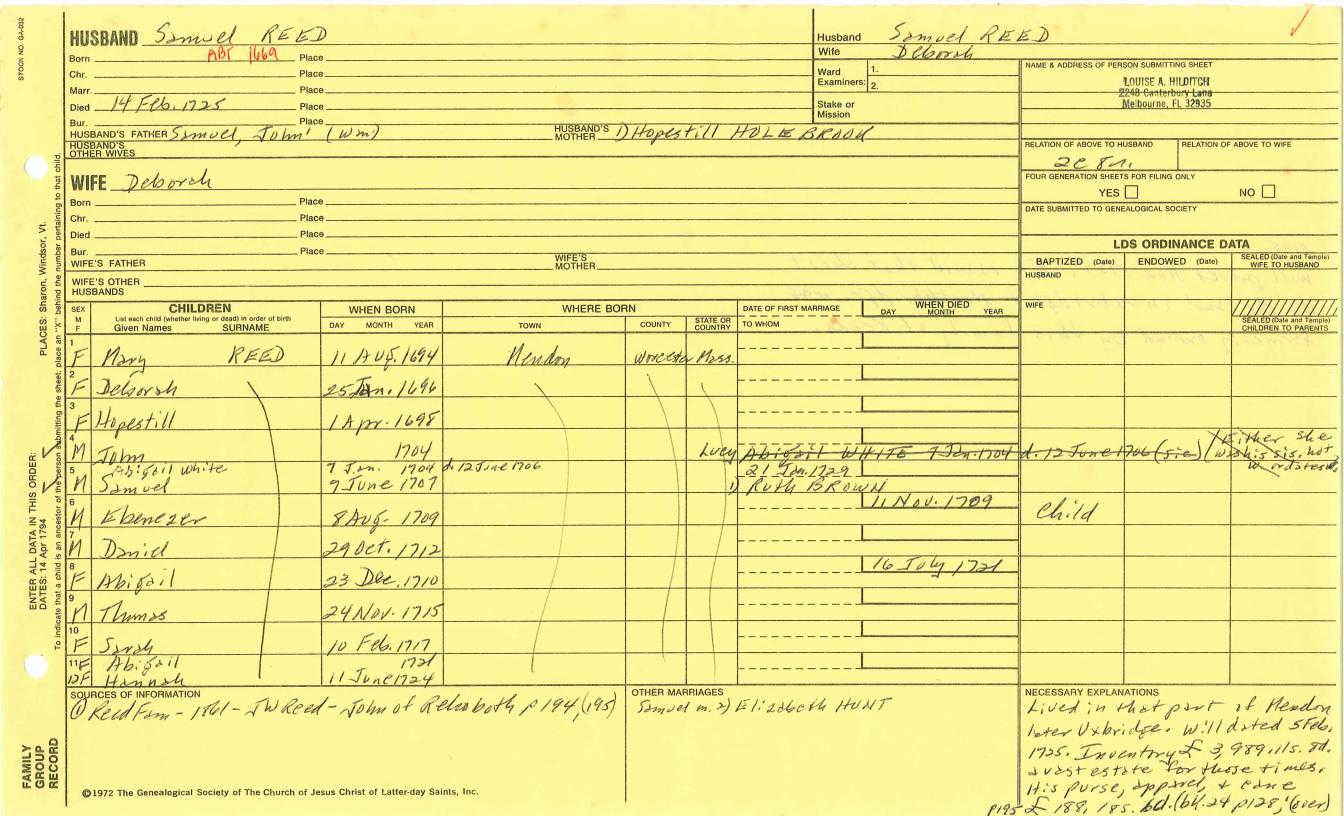 STOCK NO. GA-002
HUSBAND Samuel REED
Born ABT 1669 Place
Chr. Place
Marr. Place
Died 14 Feb. 1725 Place
Bur. Place
HUSBAND'S FATHER Samuel, John' (Wm) HUSBAND'S MOTHER 1) Hopestill HOLEBROOK
HUSBAND'S OTHER WIVES
Husband Samuel REED
Wife Deborah
Ward Examiners: 1.
2.
Stake or Mission
NAME & ADDRESS OF PERSON SUBMITTING SHEET
LOUISE A. HILDITCH
2248 Canterbury Lane
Melbourne, FL 32935
RELATION OF ABOVE TO HUSBAND RELATION OF ABOVE TO WIFE
FOUR GENERATION SHEETS FOR FILING ONLY
YES NO
DATE SUBMITTED TO GENEALOGICAL SOCIETY
WIFE Deborah
Born Place
Chr. Place
Died Place
Bur. Place
WIFE'S FATHER WIFE'S MOTHER
WIFE'S OTHER HUSBANDS
LDS ORDINANCE DATA
BAPTIZED (Date) ENDOWED (Date) SEALED (Date and Temple) WIFE TO HUSBAND
HUSBAND
WIFE
SEALED (Date and Temple) CHILDREN TO PARENTS
SEX M F CHILDREN WHEN BORN WHERE BORN DATE OF FIRST MARRIAGE WHEN DIED
List each child (whether living or dead) in order of birth
Given Names SURNAME DAY MONTH YEAR TOWN COUNTY STATE OR COUNTRY TO WHOM DAY MONTH YEAR
1 F Mary REED 11 Aug. 1694 Mendon Worcester Mass.
2 F Deborah 25 Jan. 1696
3 F Hopestill 1 Apr. 1698
4 M John 1704 Lucy Abigail WHITE 7 Jan. 1704 d. 12 June 1706 (sic) (Either she was his sis, not w. or dates
Abigail White 7 Jan. 1704 d. 12 June 1706 21 Jan. 1729
5 M Samuel 9 June 1707 1) Ruth BROWN
6 M Ebenezer 8 Aug. 1709 11 Nov. 1709 Child
7 M Daniel 29 Oct. 1712
8 F Abigail 23 Dec. 1710 16 July 1721
9 M Thomas 24 Nov. 1715
10 F Sarah 10 Feb. 1717
11 F Abigail 1721
12 F Hannah 11 June 1724
SOURCES OF INFORMATION
@ Reed Fam - 1861 - JW Reed - John of Rehoboth p 194, (195)
OTHER MARRIAGES
Samuel m. 2) Elizabeth HUNT
NECESSARY EXPLANATIONS
Lived in that part of Mendon
later Uxbridge. Will dated 5 Feb.
1725. Inventory £ 3,989.11s. 8d.
a vast estate for those times.
His purse, apparel, & cane
p195 £ 188, 18s. 6d. (bk. 24 p128, (over)
©1972 The Genealogical Society of The Church of Jesus Christ of Latter-day Saints, Inc.
FAMILY GROUP RECORD
ENTER ALL DATA IN THIS ORDER:
DATES: 14 Apr 1794
PLACES: Sharon, Windsor, Vt.
To indicate that a child is an ancestor of the person submitting the sheet, place an "X" behind the number pertaining to that child.